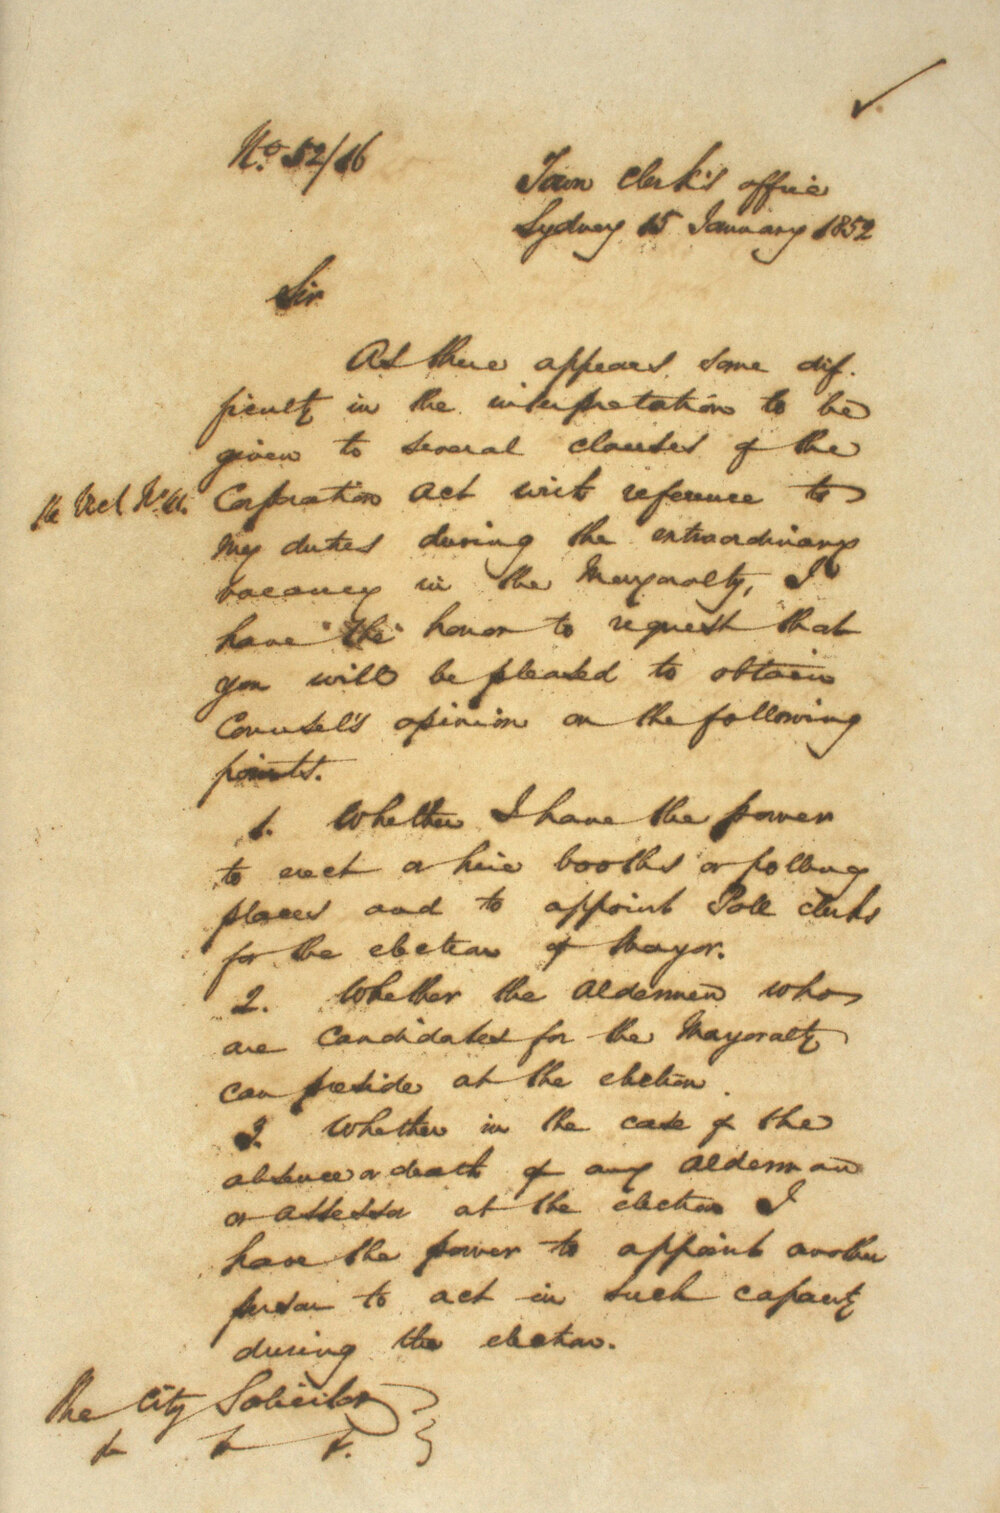 No. 52/16
Town Clerk's office
Sydney 15 January 1852
Sir
As there appears some dif-
ficulty in the interpretation to be
given to several clauses of the
14 Vict No. 41. Corporation act with reference to
my duties during the extraordinary
vacancy in the Mayoralty, I
have "the" honor to request that
you will be pleased to obtain
Counsel's opinion on the following
points.
1. Whether I have the power
to erect or hire booths or polling
places and to appoint Poll clerks
for the election of Mayor.
2. Whether the Aldermen who
are Candidates for the Mayoralty
can preside at the election.
3. Whether in the case of the
absence or death of any Alderman
or Assessor at the election I
have the power to appoint another
person to act in such capacity
during the election.
The City Solicitor
&c &c &c.